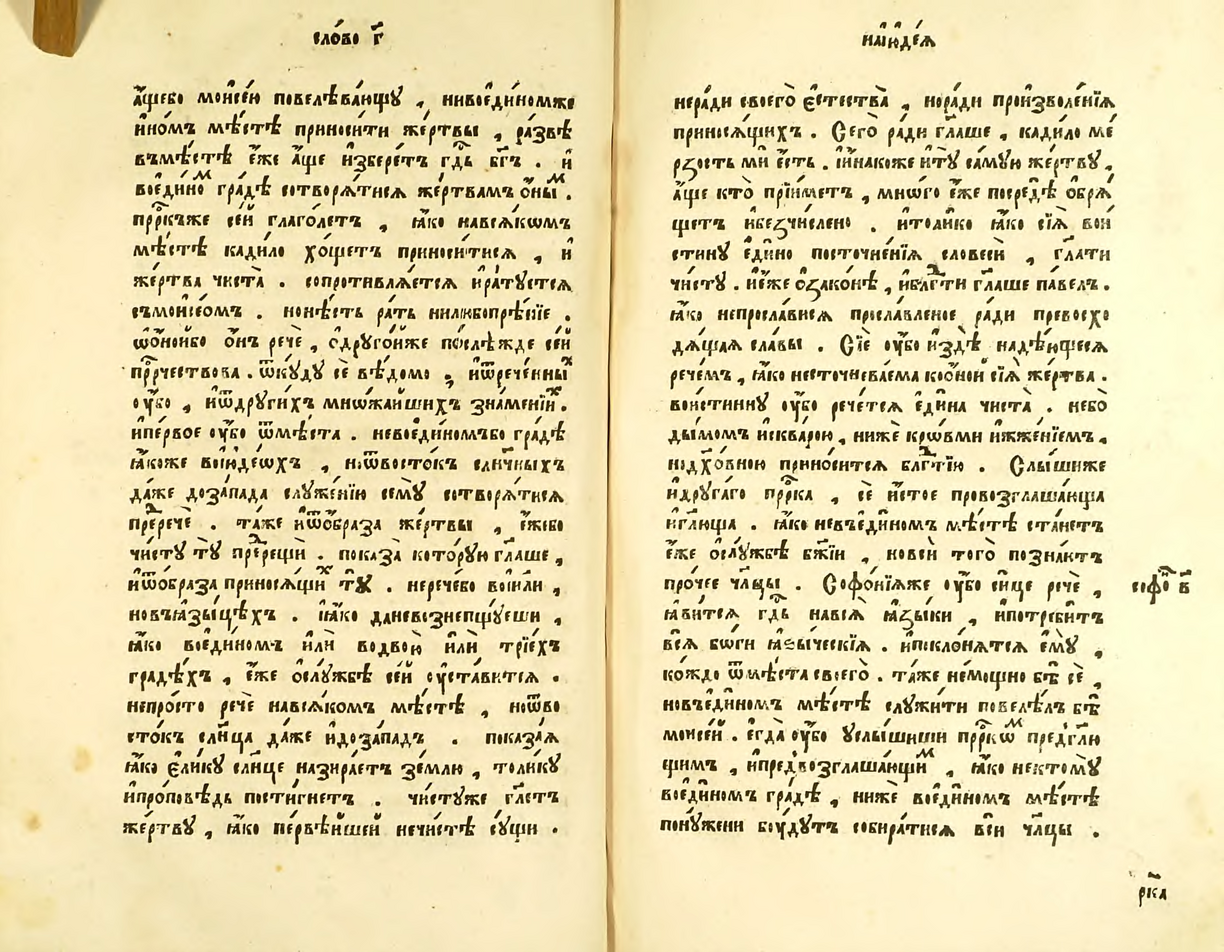 сло́во г҃
а҆́щебо моисе́ю повелѣва́ющу , нивоеди́номже
и҆́номъ мѣ́стѣ приноси́ти же́ртвы , ра́звѣ
въмѣ́стѣ е҆́же а҆́ще и҆збере́тъ гдⷭ҇ь бг҃ъ . и҆
воеди́ноⷨ гра́дѣ сотворѧ́тисѧ же́ртвамъ ѻ҆́ныⷨ .
прⷪ҇ркъже се́й глаго́летъ , ꙗ҆́ко навсѧ́комъ
мѣ́стѣ кади́ло хо́щетъ приноси́тисѧ , и҆
же́ртва чиста̀ . сопротивлѧ́етсѧ и҆ра́туетсѧ
съмоисе́омъ . нонѣ́сть ра́ть нилюбопрѣ́нїе .
ѡ҆́нои҆бо ѻ҆́нъ речѐ , ѻ҆друго́йже послѣ́жде се́й
прⷪ҇рчествова . ѿку́ду сѐ вѣ́домо , и҆ѿрече́нныⷯ
ѹ҆́бо , и҆ѿдруги́хъ мно́жайшихъ зна́менїиⷯ .
и҆пе́рвое ѹ҆́бо ѿмѣ́ста . невоеди́номъбо гра́дѣ
ꙗ҆́коже вои҆юде́охъ , и҆ѿвосто́къ сл҃ичныхъ
да́же доза́пада служе́нїю сему̀ сотворѧ́тисѧ
пре́дречѐ . та́же и҆ѿо́браза же́ртвы , е҆́жебо
чи́сту ту̀ пре́дрещѝ . показа̀ кото́рую гл҃аше ,
и҆ѿо́браза приносѧ́щиⷯ ту̀ . нерече́бо вои҆и҃ли ,
новъꙗ҆зы́цѣхъ . ꙗ҆́ко даневознепщу́еши ,
ꙗ҆́ко воеди́номъ и҆лѝ водвою̀ и҆лѝ трїе́хъ
гра́дѣхъ , е҆́же ѻ҆слу́жбѣ се́й ѹ҆ста́витсѧ .
непро́сто речѐ навсѧ́комъ мѣ́стѣ , ноѿво
сто́къ сл҃нца да́же и҆доза́падъ . показа́ѧ
ꙗ҆́ко є҆ли́ку сл҃нце назира́етъ зе́млю , толи́ку
и҆про́повѣдь пости́гнетъ . чи́стуже гл҃етъ
же́ртву , ꙗ҆́ко пе́рвѣйшей нечи́стѣ су́щи .
наи҆юде́ѧ
нера́ди своего̀ є҆стества̀ , нора́ди произволе́нїѧ
приносѧ́щихъ . Сего̀ ра́ди гл҃аше , кади́ло ме́
рзость мѝ е҆́сть . и҆́накоже и҆ту̀ са́мую же́ртву ,
а҆́ще кто̀ прїи́метъ , мно́го е҆́же посредѣ̀ ѻ҆брѧ́
щетъ и҆безчи́слено . и҆толи́ко ꙗ҆́ко сїѧ̀ вои́
стину е҆ди́но посточне́нїѧ словесѝ , гл҃ати
чи́сту . и҆́еже ѻ҆зако́нѣ , и҆блгⷣ҇ти гл҃аше па́велъ .
ꙗ҆́ко непросла́висѧ просла́вленое ра́ди превосхо
дѧ́щаѧ сла́вы . Сїѐ ѹ҆́бо и҆здѣ̀ надѣ́ющесѧ
рече́мъ , ꙗ҆́ко
вои́стинну ѹ҆́бо рече́тсѧ е҆ди́на чиста̀ . небо̀
ды́момъ и҆сква́рою , ни́же кро́вми и҆жже́нїемъ ,
нодх҃о́вною прино́ситсѧ блгⷣ҇тїю . Слы́шиже
и҆друга́го прⷪ҇рка , сѐ и҆́стое провозглаша́юща
и҆гл҃юща . ꙗ҆́ко невъеди́номъ мѣ́стѣ ста́нетъ
е҆́же ѻ҆слу́жбѣ бж҃їи , новсѝ того̀ позна́ютъ
про́чее чл҃цы . Софо́нїѧже ѹ҆́бо си́це речѐ ,
софоⷩ҇ в҃
ꙗ҆ви́тсѧ гдⷭ҇ь навсѧ̀ ꙗ҆зы́ки , и҆потреби́тъ
всѧ̀ бо́ги ꙗ҆зы́ческїѧ . и҆покло́нѧтсѧ е҆му̀ ,
ко́ждо ѿмѣ́ста своего̀ . та́же немо́щно бѣ̀ сѐ ,
новъеди́номъ мѣ́стѣ служи́ти повелѣ́лъ бѣ̀
моисе́й . е҆гда̀ ѹ҆́бо у҆слы́шиши прⷪ҇ркоⷨ предгл҃ю
щимъ , и҆предвозглаша́ющиⷨ , ꙗ҆́ко нектому̀
воеди́номъ гра́дѣ , ни́же воеди́номъ мѣ́стѣ
пону́жени бу́дутъ собира́тисѧ всѝ чл҃цы .
рк҃а